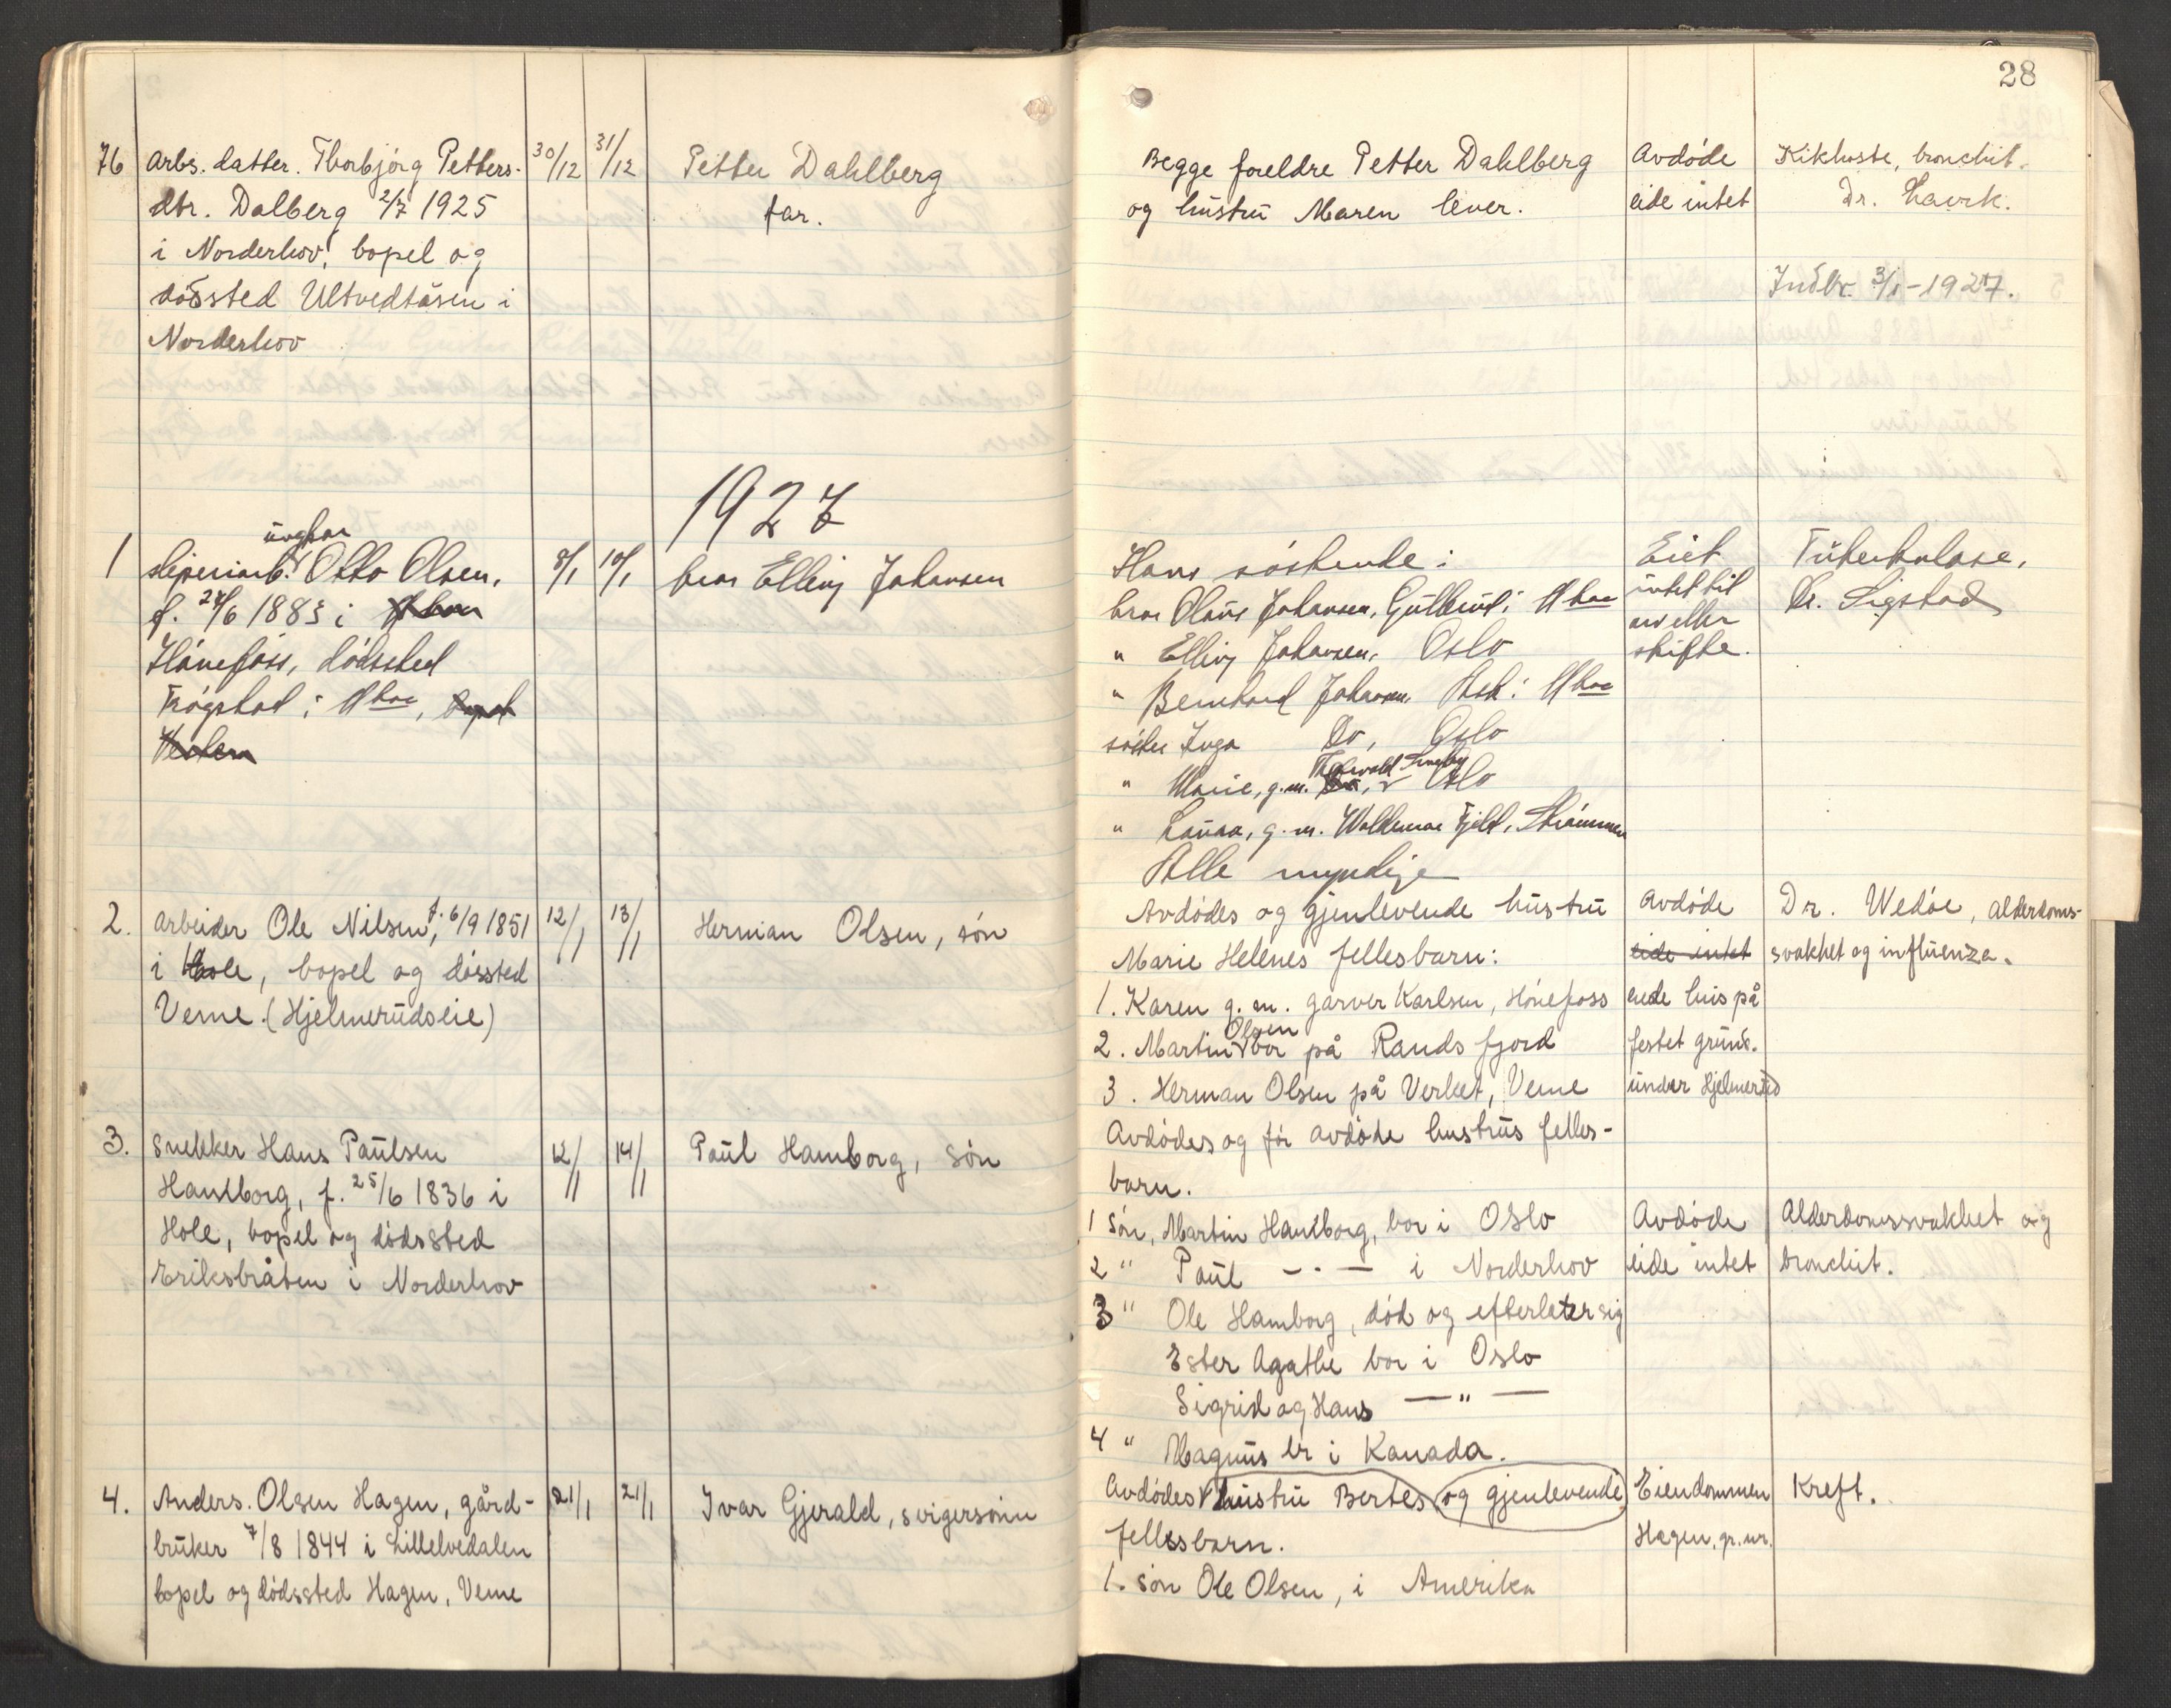 28
76 Arbs. datter. Thorbjörg Petters-
dtr. Dalberg 2/7 1925
i Norderhov, bopel og
dödssted Ultvedtåsen i
Norderhov
30/12 31/12
Petter Dahlberg
far.
Begge foreldre Petter Dahlberg
og hustru Maren lever.
Avdöde
eide intet
Kikhoste, bronchit.
Dr. Lavrk.
Indbr. 3/1-1927.
1927
1 sliperiarb. ungkar Otto Olsen,
f. 24/6 1883 i
Hönefoss, dödssted
Trögstad i Aboe, bopel
Verlem
8/1 10/1
bror Elling Johansen
Hans söskende:
bror Olaus Johansen, Gullerud i Aboe
" Elling Johansen, Oslo
" Bernhard Johansen, Ask i Aboe
söster Inga Do, Oslo
" Marie, g.m. Thorvald Oslo
" Laura, g.m. Waldemar Fjeld, Strömmen
Alle myndige
Eiet
intet til
arv eller
skifte.
Tuberkulose.
Dr. Sigstad
2. Arbeider Ole Nilsen, f. 6/9 1851
i Hole, bopel og dössted
Veme (Hjelmerudseie)
12/1 13/1
Herman Olsen, sön
Avdödes og gjenlevende hustru
Marie Helenes fellesbarn:
1. Karen g.m. garver Karlsen, Hönefoss
2. Martin Olsen bor på Randsfjord
3. Herman Olsen på Verket, Veme
Avdödes og för avdöde hustrus felles-
barn.
Avdöde
eide intet
eide hus på
festet grund
under Hjelmerud
Dr. Wedöe, Alderdoms-
svakhet og influenza.
3. Snekker Hans Paulsen
Hamborg, f. 25/6 1836 i
Hole, bopel og dödssted
Eriksbråten i Norderhov
12/1 14/1
Paul Hamborg, sön
1 Sön, Martin Hamborg, bor i Oslo
2 " Paul — · — i Norderhov
3 " Ole Hamborg, död og efterlater sig
Ester Agathe bor i Oslo
Sigrid og Hans — " —
4 " Magnus er i Kanada.
Avdöde
eide intet
Alderdomssvakhet og
bronchit.
4. Anders Olsen Hagen, gård-
bruker 7/8 1844 i Lillelvedalen
bopel og dödssted Hagen, Veme
21/1 21/1
Ivar Gjerald, svigersönn
Avdödes hustru Bertes og gjenlevende
fellesbarn.
1. sön Ole Olsen, i Amerika
Eiendommen
Hagen, gr. nr.
Kreft.